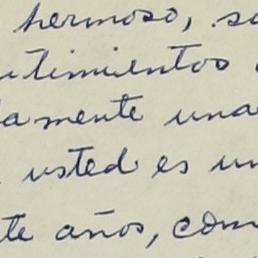 hermoso, so
timientos
amente una
usted es un
te años, com